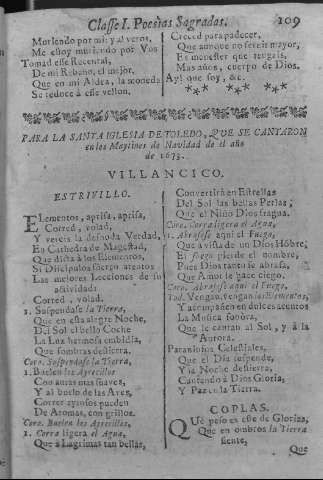 Classe I. Poesias Sagradas. 109
Muriendo por mi; y al veros,
Me estoy muriendo por Vos
Tomad esse Recental,
De mi Rebaño, el mejor,
Que en mi Aldea, la moneda
Se reduce à este vellon.
Creced para padecer,
Que aunque no sereis mayor,
Es menester que tengais,
Mas años, cuerpo de Dios.
Ay! que soy, &c.
PARA LA SANTA IGLESIA DE TOLEDO, QUE SE CANTARON
en los Maytines de Navidad de el año
de 1673.
VILLANCICO.
ESTRIVILLO.
Elementos, aprisa, aprisa,
Corred, volad,
Y vereis la desnuda Verdad,
En Cathedra de Magestad,
Que dicta à los Elementos,
Si Discipulos fueren atentos
Las mejores Lecciones de su
actividad:
Corred, volad.
1. Suspendase la Tierra,
Que en esta alegre Noche,
Del Sol el bello Coche
La Luz hermosa embidia,
Que sombras destierra.
Coro. Suspendase la Tierra,
1. Buelen los Ayrecillos
Con auras mas suaves,
Y al buelo de las Aves,
Correr ayrosos pueden
De Aromas, con grillos.
Coro. Buelen los Ayrecillos,
1. Corra ligera el Agua,
Que à Lagrimas tan bellas,
Convertirà en Estrellas
Del Sol las bellas Perlas,
Que el Niño Dios fragua.
Coro. Corra ligera el Agua,
1. Abrasese aqui el Fuego,
Que à vista de un Dios Hõbre,
El fuego pierde el nombre,
Pues Dios tanto se abrasa,
Que Amor le hace ciego.
Coro. Abrasese aqui el Fuego.
Tod. Vengan, vengan los Elementos,
Y acompañen en dulces acentos
La Musica sonora,
Que le cantan al Sol, y à la
Aurora.
Paraninfos Celestiales,
Que el Dia suspende,
Y la Noche destierra,
Cantando à Dios Gloria,
Y Paz en la Tierra.
COPLAS.
Què peso es esse de Glorias,
Que en ombros la Tierra
siente,
Que